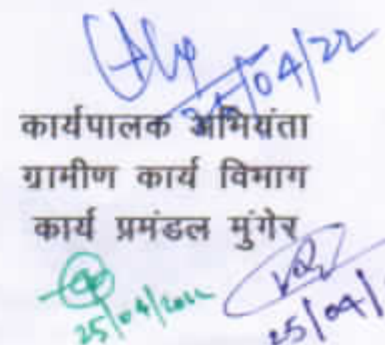 25/04/22
कार्यपालक अभियंता
ग्रामीण कार्य विभाग
कार्य प्रमंडल मुंगेर
25/04/2022
25/04/